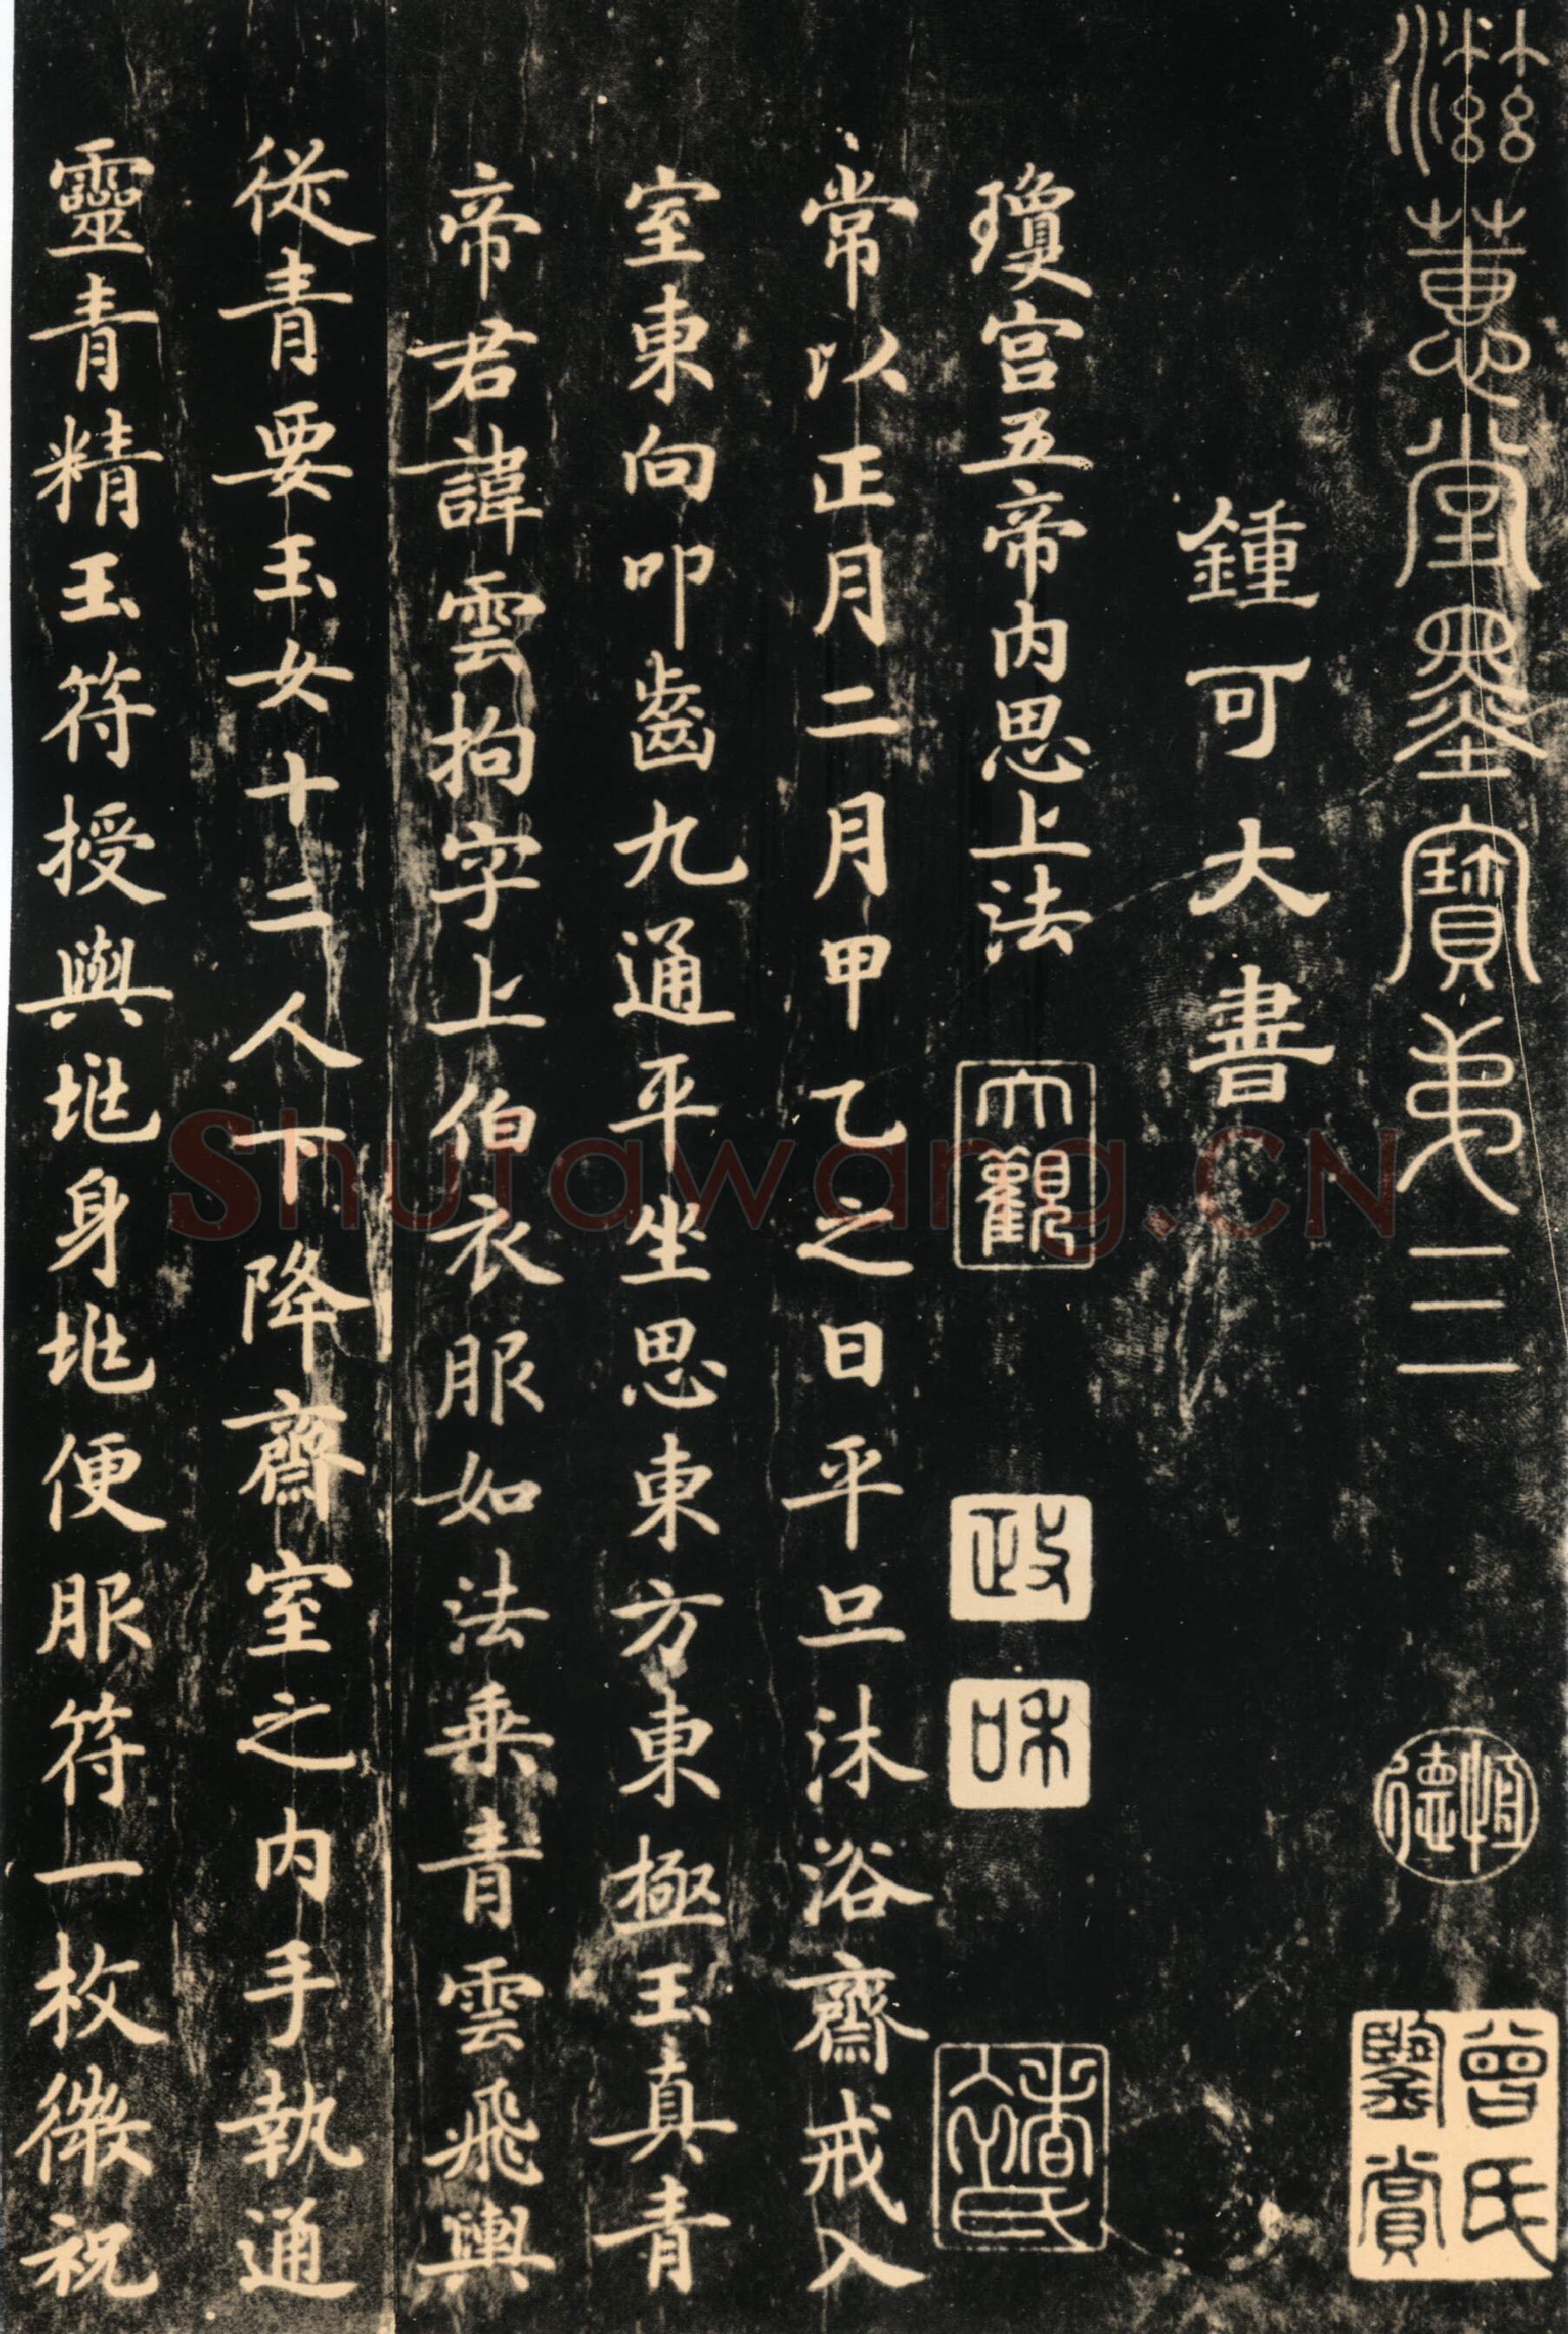 滋蕙堂墨寶弟三
恒德
曾氏
鑒賞
鍾可大書
瓊宮五帝內思上法
大觀
政
和
常以正月二月甲乙之日平旦沐浴齋戒入
室東向叩齒九通平坐思東方東極玉真青
帝君諱雲拘字上伯衣服如法乘青雲飛輿
從青要玉女十二人下降齋室之內手執通
靈青精玉符授與地身地便服符一枚微祝
Shufawang.CN